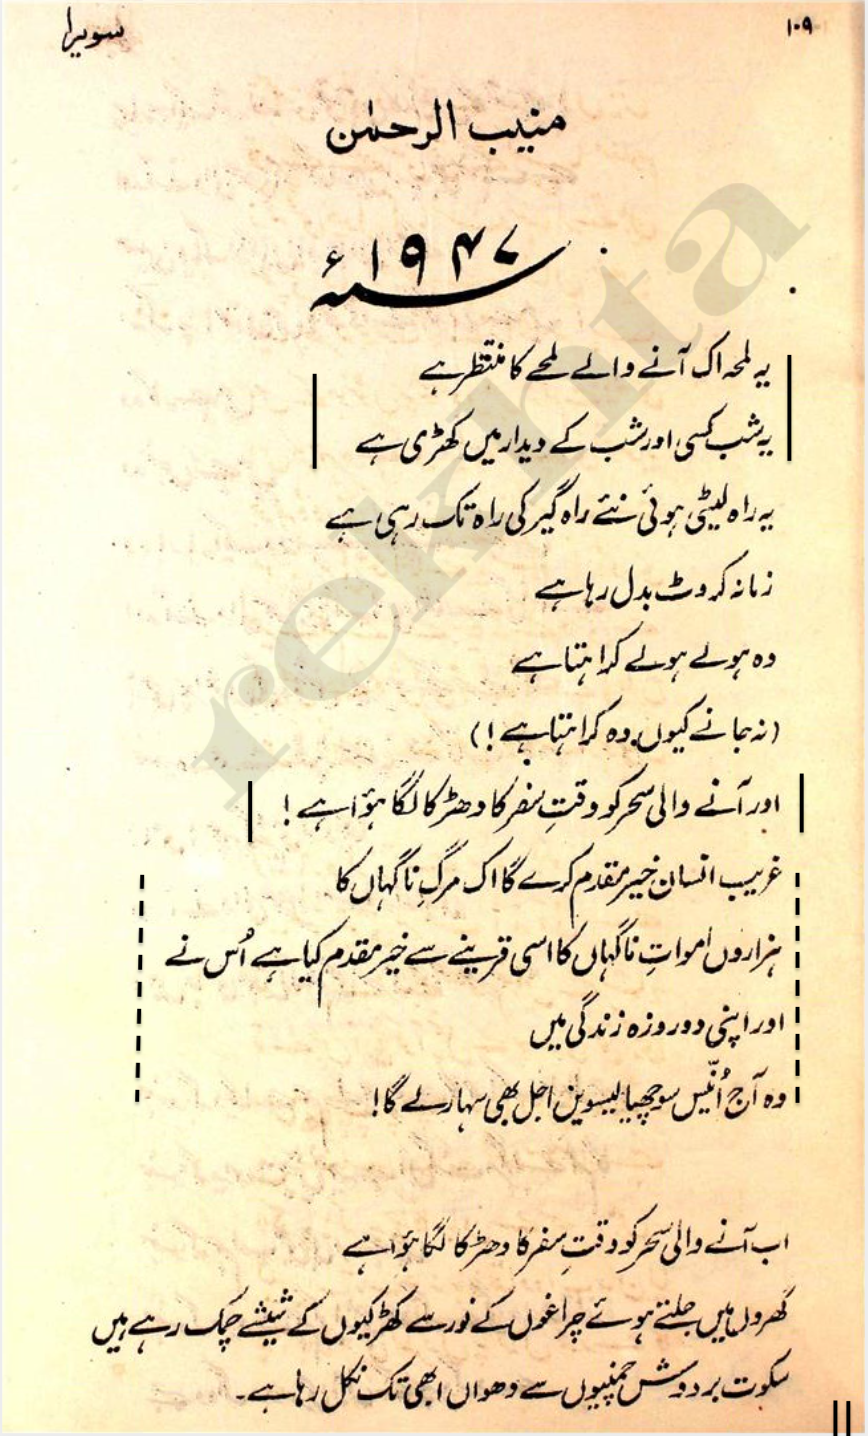 ۱۰۹
سویرا
منیب الرحمٰن
۱۹۴۷ء
یہ لمحہ اک آنے والے لمحے کا منتظر ہے
یہ شب کسی اور شب کے دیدار میں کھڑی ہے
یہ راہ لیٹی ہوئی نئے راہ گیر کی راہ تک رہی ہے
زمانہ کروٹ بدل رہا ہے
وہ ہولے ہولے کراہتا ہے
(نہ جانے کیوں وہ کراہتا ہے!)
اور آنے والی سحر کو وقتِ سفر کا دھڑکا لگا ہؤا ہے!
غریب انسان خیر مقدم کرے گا اک مرگِ ناگہاں کا
ہزاروں امواتِ ناگہاں کا اسی قرینے سے خیر مقدم کیا ہے اُس نے
اور اپنی دو روزہ زندگی میں
وہ آج اُنّیس سو چھیالیسویں اجل بھی سہار لے گا!
اب آنے والی سحر کو وقتِ سفر کا دھڑکا لگا ہؤا ہے
گھروں میں جلتے ہوئے چراغوں کے نور سے کھڑکیوں کے شیشے چمک رہے ہیں
سکوت بردوش چمنیوں سے دھواں ابھی تک نکل رہا ہے۔
rekhta